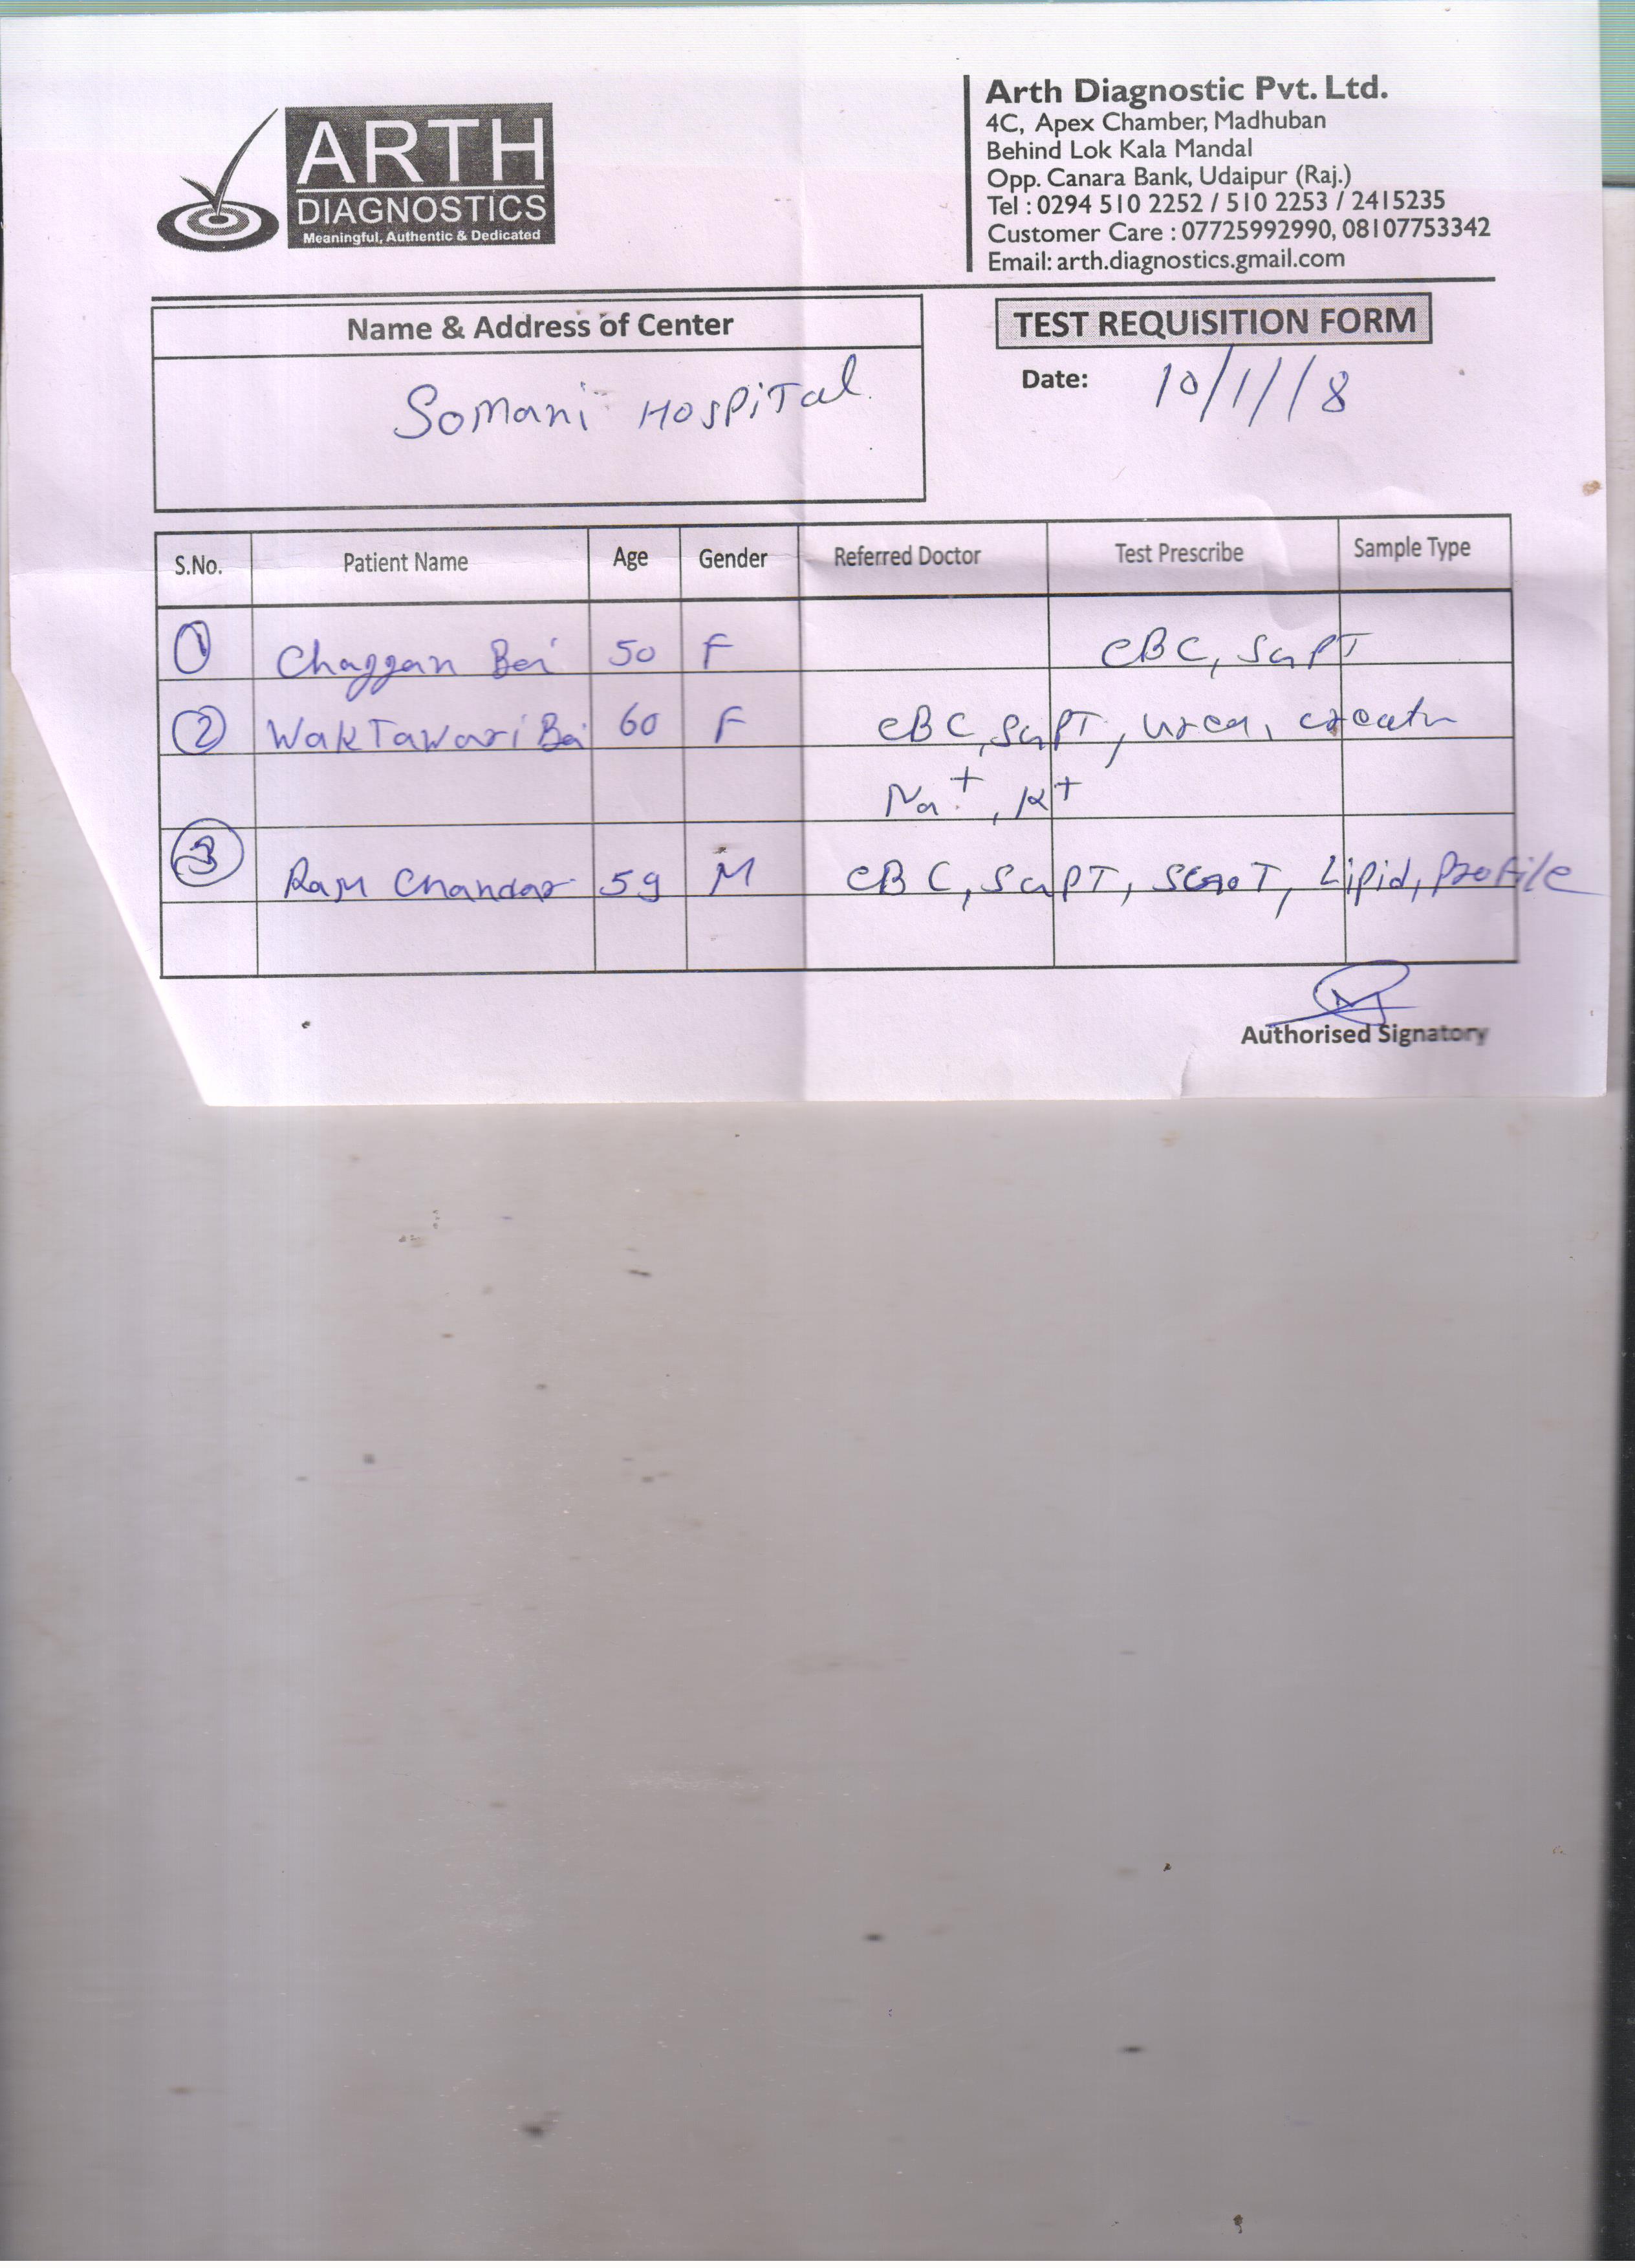 ARTH
DIAGNOSTICS
Meaningful, Authentic & Dedicated
Arth Diagnostic Pvt. Ltd.
4C, Apex Chamber, Madhuban
Behind Lok Kala Mandal
Opp. Canara Bank, Udaipur (Raj.)
Tel : 0294 510 2252 / 510 2253 / 2415235
Customer Care : 07725992990, 08107753342
Email: arth.diagnostics.gmail.com
Name & Address of Center
Somani Hospital
TEST REQUISITION FORM
Date: 10/1/18
S.No. Patient Name Age Gender Referred Doctor Test Prescribe Sample Type
1 Chaggan Bai 50 F CBC, SGPT
2 WakTawari Bai 60 F CBC, SGPT, Urea, creatn
Na+, K+
3 Ram Chandar 59 M CBC, SGPT, SGOT, Lipid, Profile
Authorised Signatory